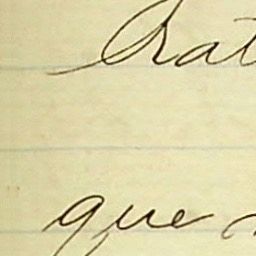 Trat
que